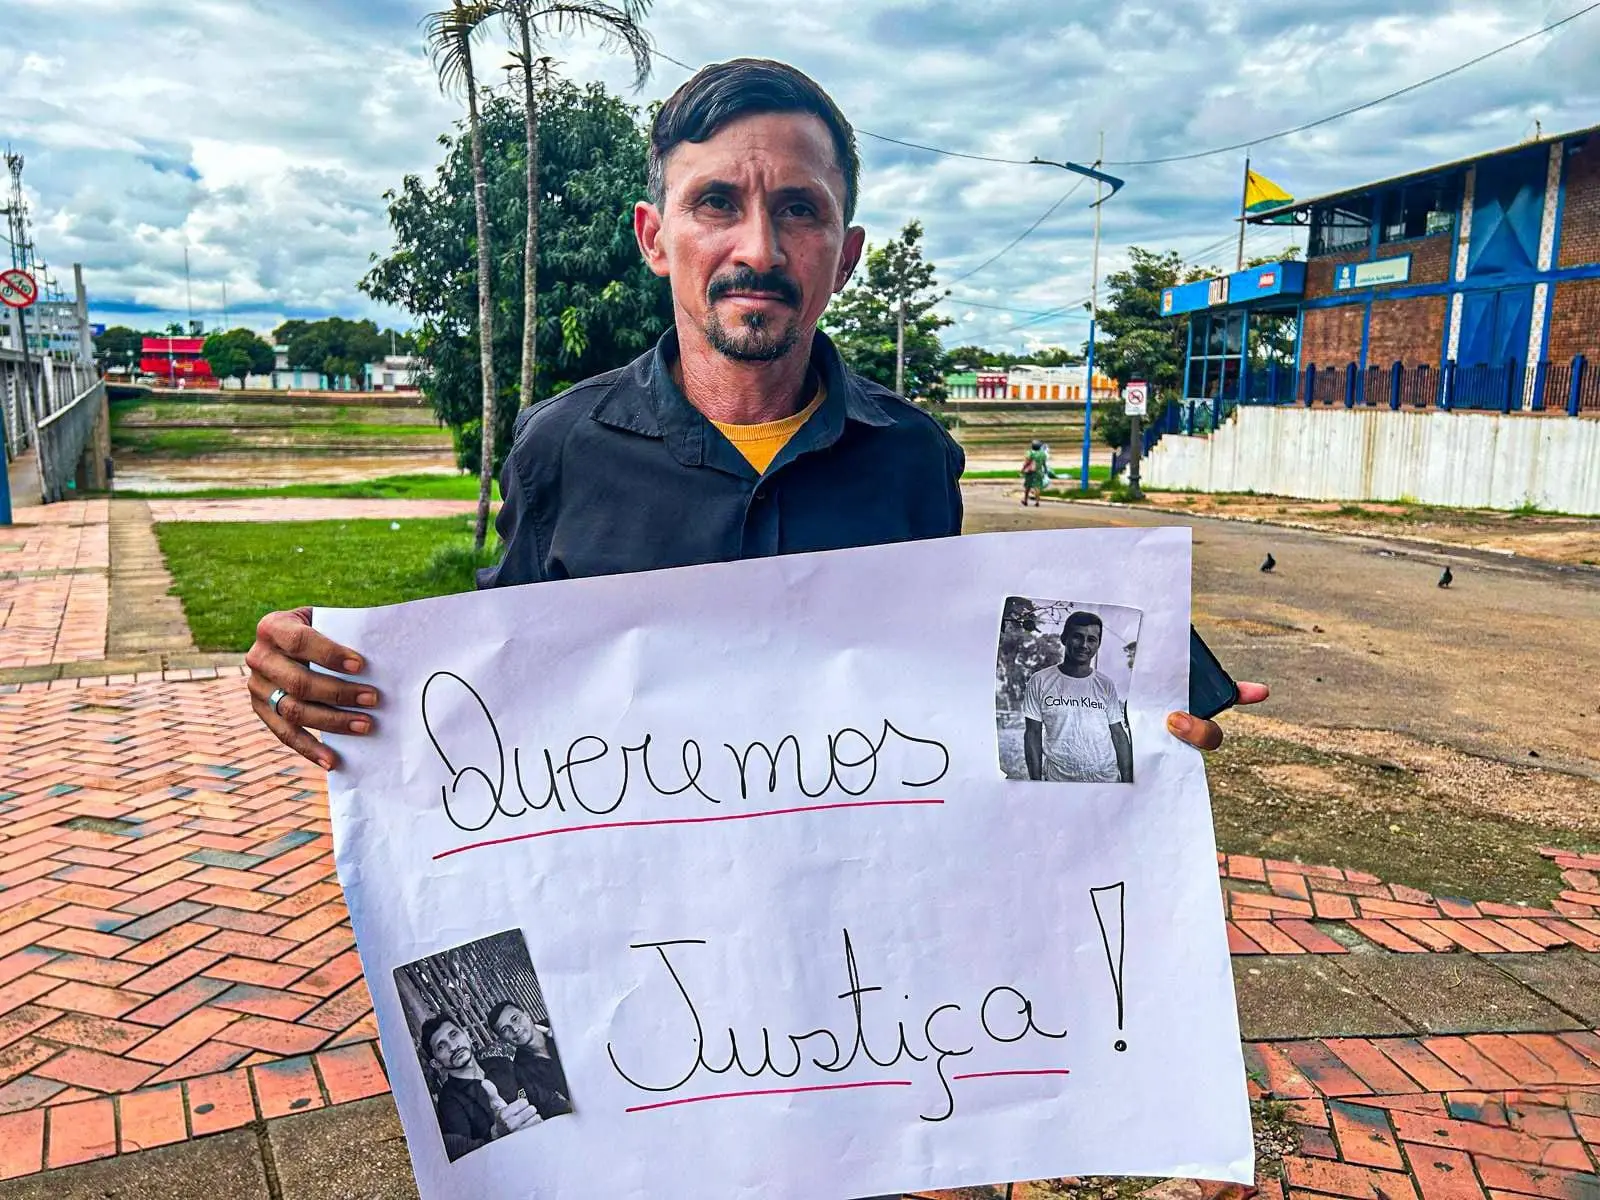 Queremos
Calvin Klein
Justiça!